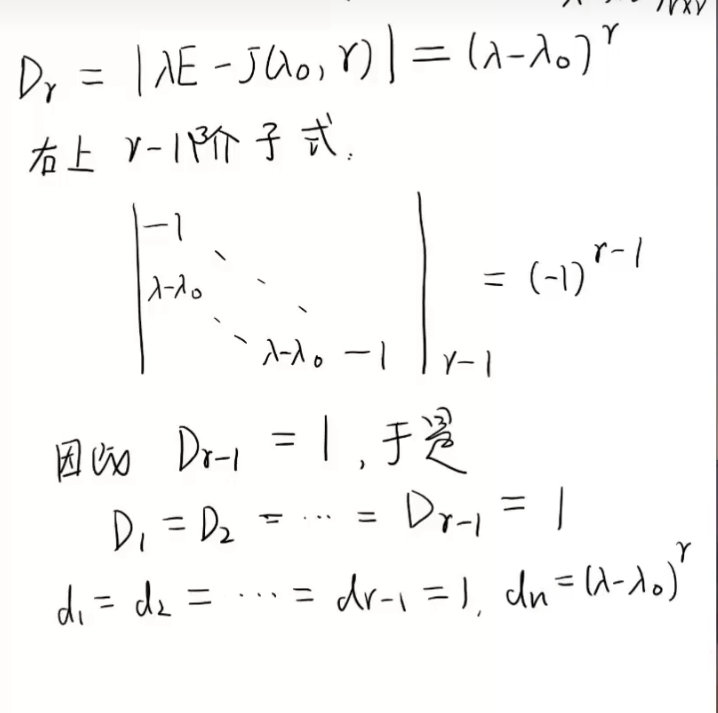 D_r = |λE - J(λ₀, r)| = (λ-λ₀)^r
右上 r-1阶子式.
|-1 ⋱
λ-λ₀ ⋱ = (-1)^{r-1}
⋱ λ-λ₀ -1|_{r-1}
因此 D_{r-1} = 1, 于是
D₁ = D₂ = ⋯ = D_{r-1} = 1
d₁ = d₂ = ⋯ = d_{r-1} = 1, d_n = (λ-λ₀)^r